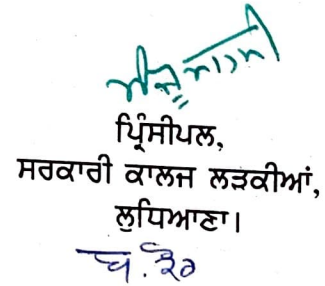 ਪ੍ਰਿੰਸੀਪਲ,
ਸਰਕਾਰੀ ਕਾਲਜ ਲੜਕੀਆਂ,
ਲੁਧਿਆਣਾ।